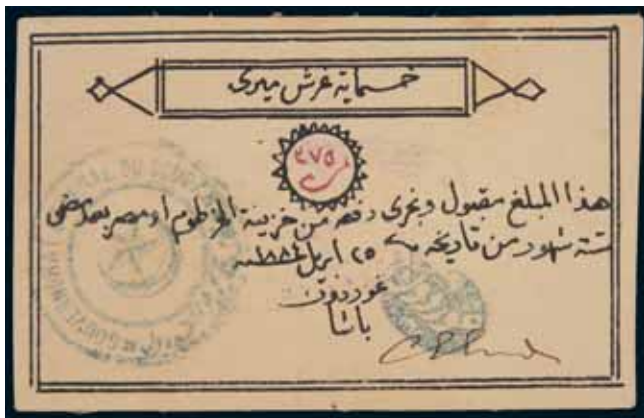 خمسماية غرش ميرى
٢٧٥
هذا المبلغ مقبول ويجرى دفعه من خزينة الخرطوم او مصر بعد مضى
ستة شهور من تاريخه ٢٥ ابريل ١٨٨٤ سنه
غوردون
باشا